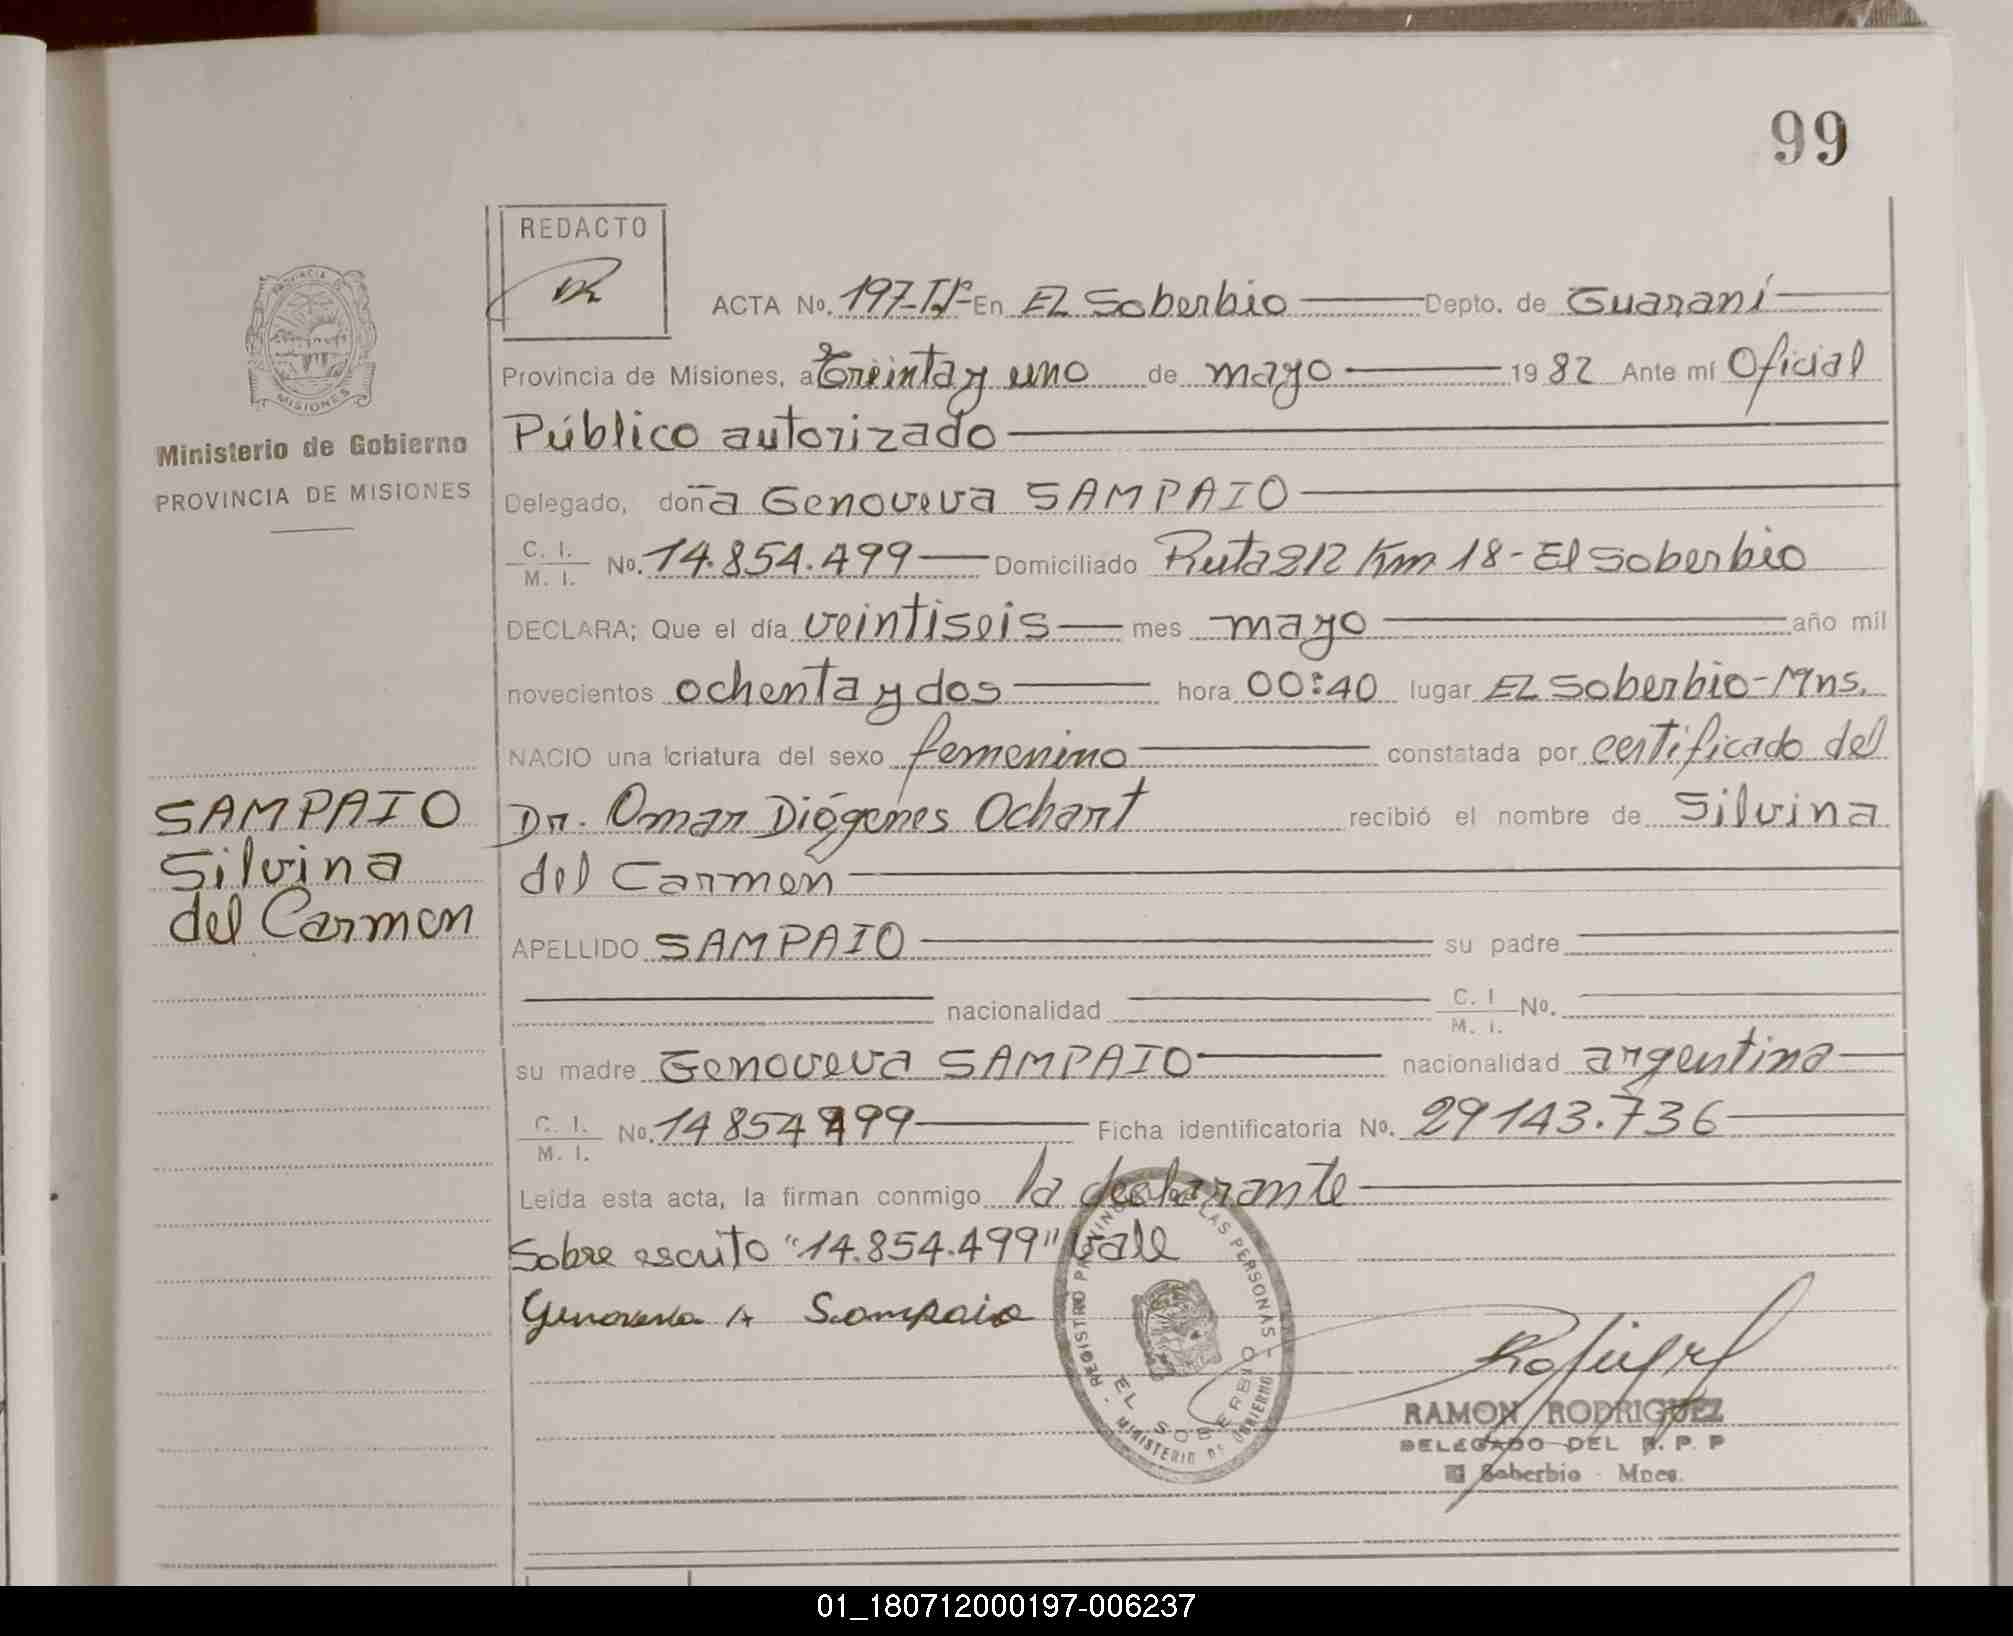 99
REDACTO
PROVINCIA DE
MISIONES
Ministerio de Gobierno
PROVINCIA DE MISIONES
SAMPAIO
Silvina
del Carmen
ACTA No. 197-Iº- En EL Soberbio Depto. de Guaraní
Provincia de Misiones, a treinta y uno de mayo 1982 Ante mí Oficial
Público autorizado
Delegado, doña Genoveva SAMPAIO
C. I. M. I. No. 14.854.499 Domiciliado Ruta 212 Km 18 - El Soberbio
DECLARA; Que el día veintiseis mes mayo año mil
novecientos ochenta y dos hora 00:40 lugar EL Soberbio-Mns.
NACIO una criatura del sexo femenino constatada por certificado del
Dr. Omar Diógenes Ochart recibió el nombre de Silvina
del Carmen
APELLIDO SAMPAIO su padre
nacionalidad C. I M. I. No.
su madre Genoveva SAMPAIO nacionalidad argentina
C. I. M. I. No. 14854499 Ficha identificatoria No. 29143.736
Leída esta acta, la firman conmigo la declarante
Sobre escrito "14.854.499" vale
Genoveva A Sampaio
REGISTRO PROVINCIAL DE LAS PERSONAS
EL SOBERBIO
MINISTERIO DE GOBIERNO
RAMON RODRIGUEZ
DELEGADO DEL R. P. P
El Soberbio - Mnes.
01_180712000197-006237